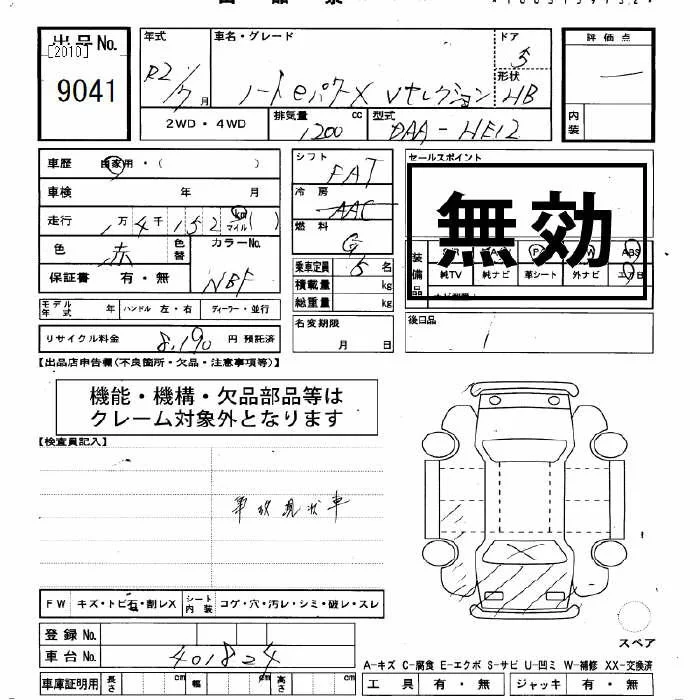 出品No.
[2010]
9041
年式
R2/7月
車名・グレード
ノートeパワーX Vセレクション
ドア
5
形状
HB
評価点
内装
2WD・4WD
排気量
1200 cc
型式
DAA-HE12
車歴 自家用・( )
車検 年 月
走行 1万4千152 km マイル( )
色 赤
色替
カラーNo.
NBF
保証書 有・無
モデル年式 年 ハンドル 左・右 ディーラー・並行
リサイクル料金 8,190円 預託済
シフト
FAT
冷房
AAC
燃料
G
乗車定員 5名
積載量 kg
総重量 kg
名変期限
月 日
セールスポイント
無効
装備品
純TV 純ナビ 革シート 外ナビ エア日
後日品
【出品店申告欄(不良箇所・欠品・注意事項等)】
機能・機構・欠品部品等は
クレーム対象外となります
【検査員記入】
事故現状車
FW キズ・トビ石・割レX シート内装 コゲ・穴・汚レ・シミ・破レ・スレ
登録No.
車台No. 401824
車庫証明用 長さ cm 幅 cm 高さ cm
スペア
A-キズ C-腐食 E-エクボ S-サビ U-凹ミ W-補修 XX-交換済
工具 有・無 ジャッキ 有・無